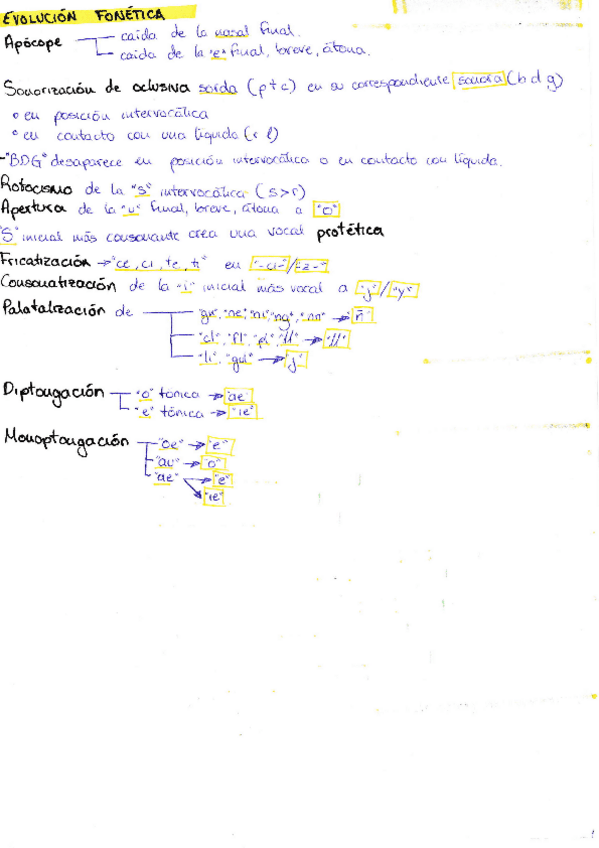 EVOLUCIÓN FONÉTICA
Apócope caída de la nasal final.
caída de la "e" final, breve, átona.
Sonorización de oclusiva sorda (p t c) en su correspondiente sonora (b d g)
o en posición intervocálica
o en contacto con una líquida (r l)
-"BDG" desaparece en posición intervocálica o en contacto con líquida.
Rotacismo de la "s" intervocálica (s>r)
Apertura de la "u" final, breve, átona a "o"
"S" inicial más consonante crea una vocal protética
Fricatización → "ce, ci, te, ti" en "-ci-"/"-z-"
Consonatización de la "i" inicial más vocal a "j"/"y"
Palatalización de "gn", "ne", "ni", "ng", "nn" → "ñ"
"cl", "fl", "pl", "ll" → "ll"
"li", "gul" → "j"
Diptongación "o" tónica → "ae"
"e" tónica → "ie"
Monoptongación "oe" → "e"
"au" → "o"
"ae" → "e"
"ie"